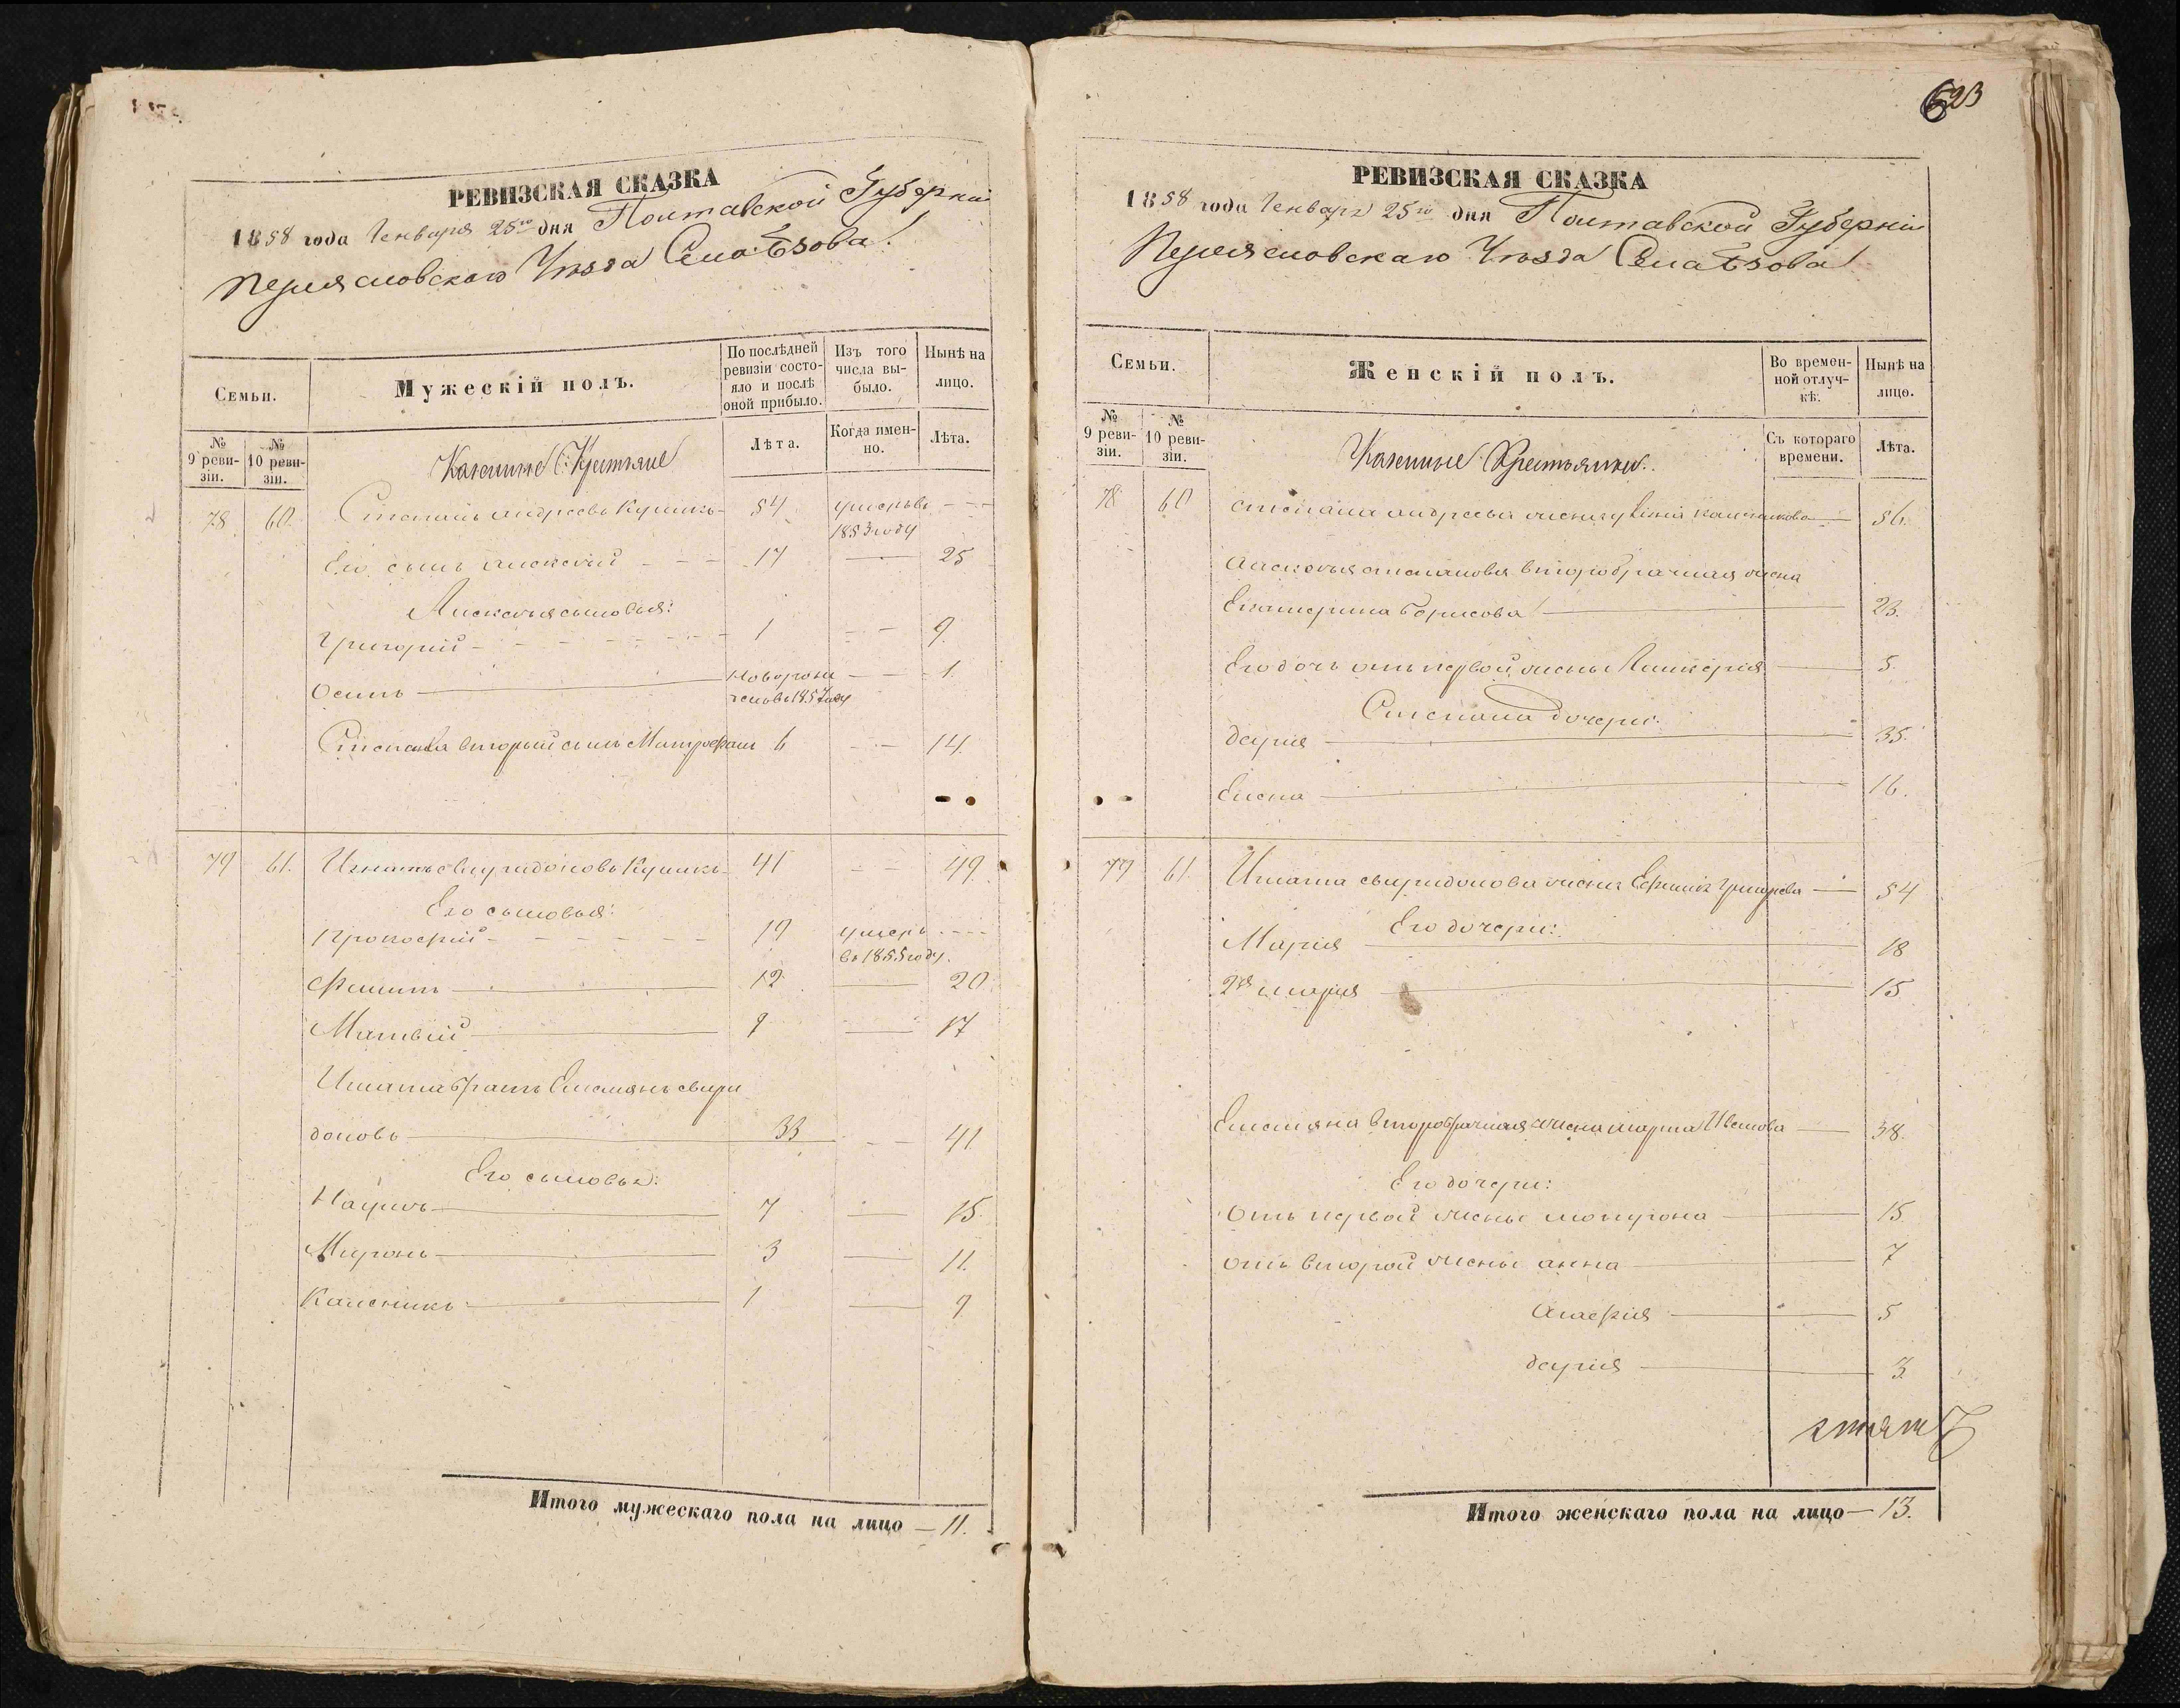 РЕВИЗСКАЯ СКАЗКА
1858 года Генваря 25го дня Полтавской Губерніи
Переясловскаго Уѣзда
Семьи.
Мужескій полъ.
По послѣдней ревизіи состояло и послѣ оной прибыло.
Изъ того числа выбыло.
Нынѣ на лицо.
№ 9 ревизіи.
№ 10 ревизіи.
Казенные Крестьяне
Лѣта.
Когда именно.
Лѣта.
78 60. Степанъ андреевъ 54 умеръ въ
1853 году
Его сынъ алексѣй 17 25
Алексѣя сыновья:
Григорій 1 9.
Осипъ новорожденовъ 1857 году 1.
Степана вторый сынъ Митрофанъ 6 14.
79 61. Игнатъ свиридоновъ 41 49.
Его сыновья:
Прокофій 19 умеръ
въ 1855 году.
Филипъ 12 20.
Матвій 9 17
Игната братъ Емелянъ свири
доновъ 33 41.
Его сыновья:
Наумъ 7 15.
Миронъ 3 11.
Каленикъ 1 9
Итого мужескаго пола на лицо — 11.
623
РЕВИЗСКАЯ СКАЗКА
1858 года Генваря 25го дня Полтавской Губерніи
Переясловскаго Уѣзда
Семьи.
Женскій полъ.
Во временной отлучкѣ.
Нынѣ на лицо.
№ 9 ревизіи.
№ 10 ревизіи.
Казенные Крестьянки.
Съ котораго времени.
Лѣта.
78 60 Степана андреева жена 56.
Алексѣя степанова второбрачная жена
Екатерина Борисова 23.
Его дочь отъ первой жены 5.
Степана дочери:
Дарія 35.
Елена 16.
79 61 Игната свиридонова жена Ефимія Григорева 54
Его дочери:
Марія 18
2я марія 15
Емеляна второбрачная жена марта Иванова 38.
Его дочери:
Отъ первой жены мотрона 15.
отъ второй жены анна 7
Агафія 5
дарія 3.
Итого женскаго пола на лицо — 13.